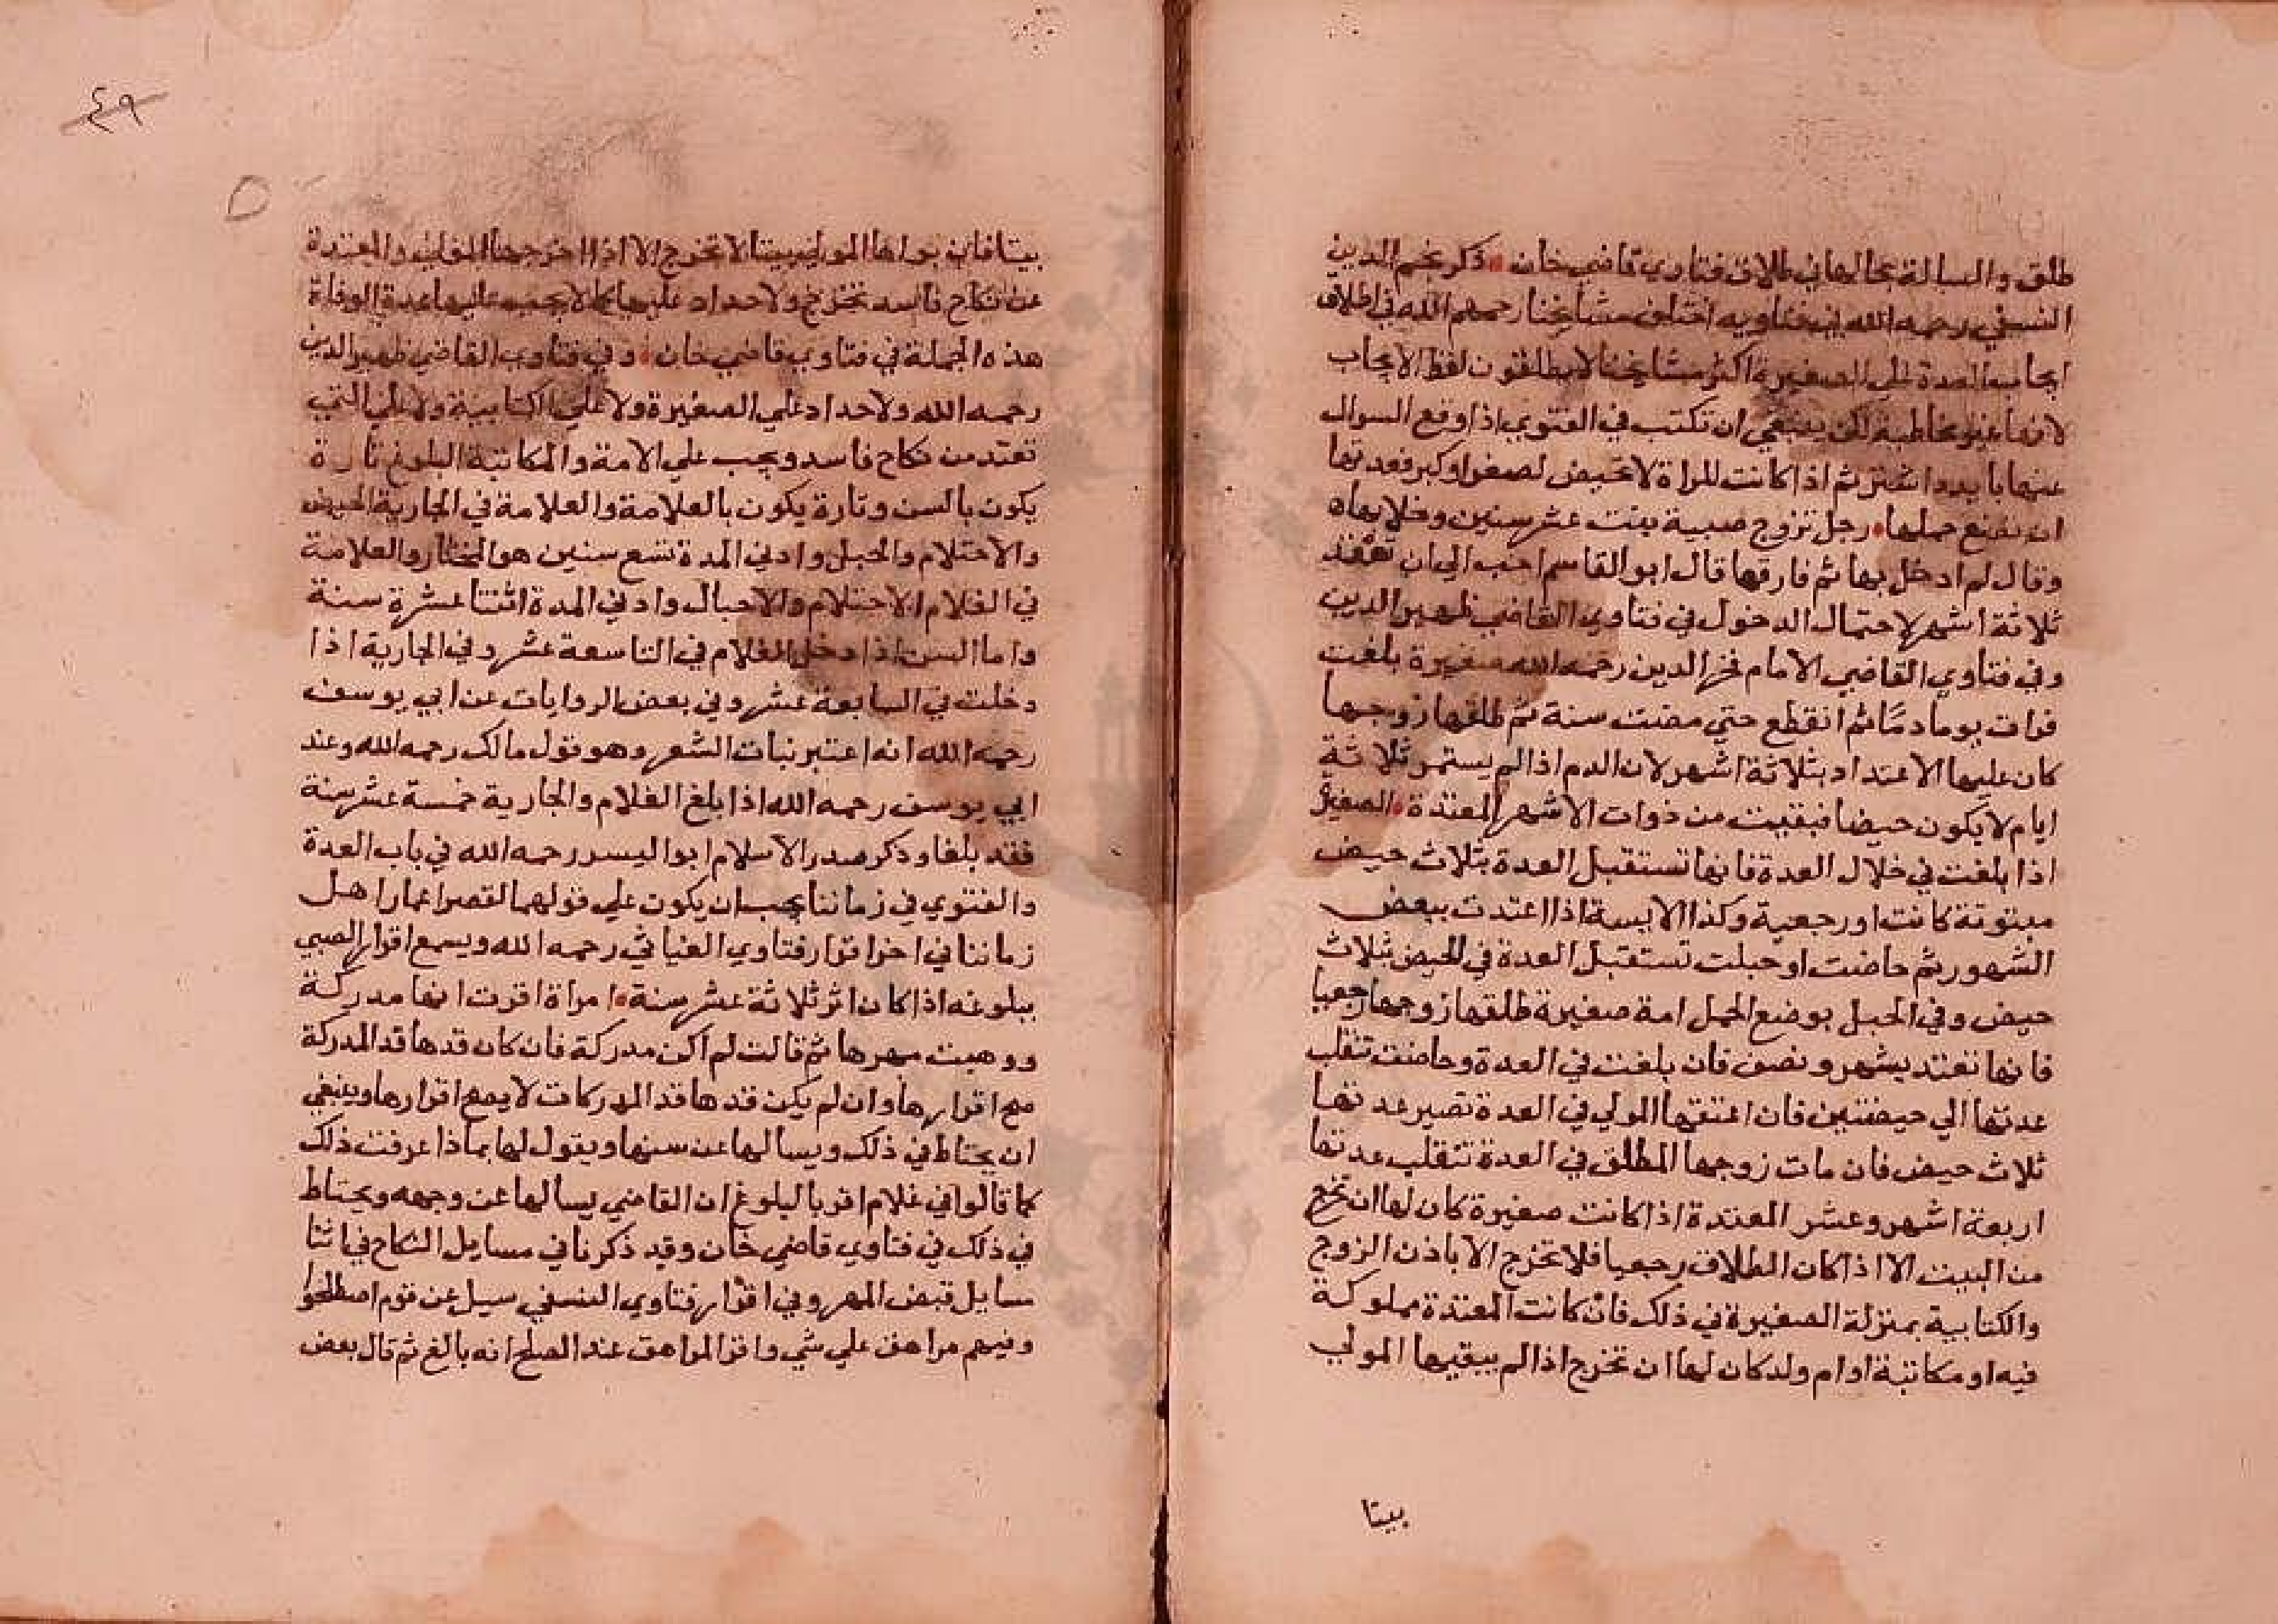 طلق والمسالة بحالها في طلاق فتاوي قاضي خان • ذكر نجم الدين
النسفي رحمه الله في فتاويه اختلف مشايخنا رحمهم الله في اطلاق
ايجاب العدة علي الصغيرة اكثر مشايخنا لا يطلقون لفظ الايجاب
لانها غير مخاطبة لكن ينبغي ان تكتب في الفتوي اذا وقع السوال
عنها ثم اذا كانت المراة لا تحيض لصغر او كبر فعدتها
ان تضع حملها • رجل تزوج صبية بنت عشر سنين وخلا بها
وقال لم ادخل بها ثم فارقها قال ابو القاسم احب الي ان تعتد
ثلاثة اشهر لاحتمال الدخول في فتاوي القاضي ظهير الدين
وفي فتاوي القاضي الامام فخر الدين رحمه الله صغيرة بلغت
فرات يوما دما ثم انقطع حتي مضت سنة ثم طلقها زوجها
كان عليها الاعتداد بثلاثة اشهر لان الدم اذا لم يستمر ثلاثة
ايام لا يكون حيضا فبقيت من ذوات الاشهر المعتدة • الصغيرة
اذا بلغت في خلال العدة فانها تستقبل العدة بثلاث حيض
مبتوتة كانت او رجعية وكذا الايسة اذا اعتدت ببعض
الشهور ثم حاضت او حبلت تستقبل العدة في الحيض بثلاث
حيض وفي الحبل بوضع الحمل امة صغيرة طلقها زوجها رجعيا
فانها تعتد بشهر ونصف فان بلغت في العدة وحاضت تنقلب
عدتها الي حيضتين فان اعتقها المولي في العدة تصير عدتها
ثلاث حيض فان مات زوجها المطلق في العدة تنقلب عدتها
اربعة اشهر وعشر المعتدة اذا كانت صغيرة كان لها ان تخرج
من البيت الا اذا كان الطلاق رجعيا فلا تخرج الا باذن الزوج
والكتابية بمنزلة الصغيرة في ذلك فان كانت المعتدة مملوكة
فيه او مكاتبة او ام ولد كان لها ان تخرج اذا لم يبقيها المولي
بيتا
٤٩
بيتا فان بواها المولي بيتا لا تخرج الا اذا اخرجها المولي والمعتدة
عن نكاح فاسد تخرج ولا حداد عليها كما لا يجب عليها عدة الوفاة
هذه الجملة في فتاوي قاضي خان • وفي فتاوي القاضي ظهير الدين
رحمه الله ولا حداد علي الصغيرة ولا علي الكتابية ولا علي التي
تعتد من نكاح فاسد ويجب علي الامة والمكاتبة البلوغ تارة
يكون بالسن وتارة يكون بالعلامة والعلامة في الجارية الحيض
والاحتلام والحبل وادني المدة تسع سنين هو المختار والعلامة
في الغلام الاحتلام والاحبال وادني المدة اثنتا عشرة سنة
واما السن اذا دخل الغلام في التاسعة عشر وفي الجارية اذا
دخلت في السابعة عشر وفي بعض الروايات عن ابي يوسف
رحمه الله انه اعتبر نبات الشعر وهو قول مالك رحمه الله وعند
ابي يوسف رحمه الله اذا بلغ الغلام والجارية خمسة عشر سنة
فقد بلغا وذكر صدر الاسلام ابو اليسر رحمه الله في باب العدة
والفتوي في زماننا يجب ان يكون علي قولهما لقصر اعمار اهل
زماننا في اخر اقرار فتاوي العتابي رحمه الله ويسمع اقرار الصبي
ببلوغه اذا كان اثر ثلاثة عشر سنة • امراة اقرت انها مدركة
ووهبت مهرها ثم قالت لم اكن مدركة فان كان قدها قد المدركة
صح اقرارها وان لم يكن قدها قد المدركات لا يصح اقرارها وينبغي
ان يحتاط في ذلك ويسالها عن سنها ويقول لها بماذا عرفت ذلك
كما قالوا في غلام اقر بالبلوغ ان القاضي يسالها عن وجهه ويحتاط
في ذلك في فتاوي قاضي خان وقد ذكرنا في مسايل النكاح في اثنا
مسايل قبض المهر وفي اقرار فتاوي النسفي سيل عن قوم اصطلحوا
وفيهم مراهق علي شي واقر المراهق عند الصلح انه بالغ ثم قال بعض